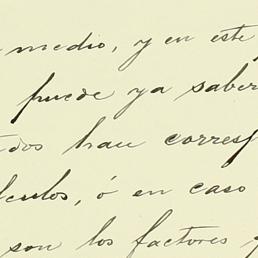 medio, y en este
puede ya saber
dos han corresp
culos, ó en caso
son los factores y